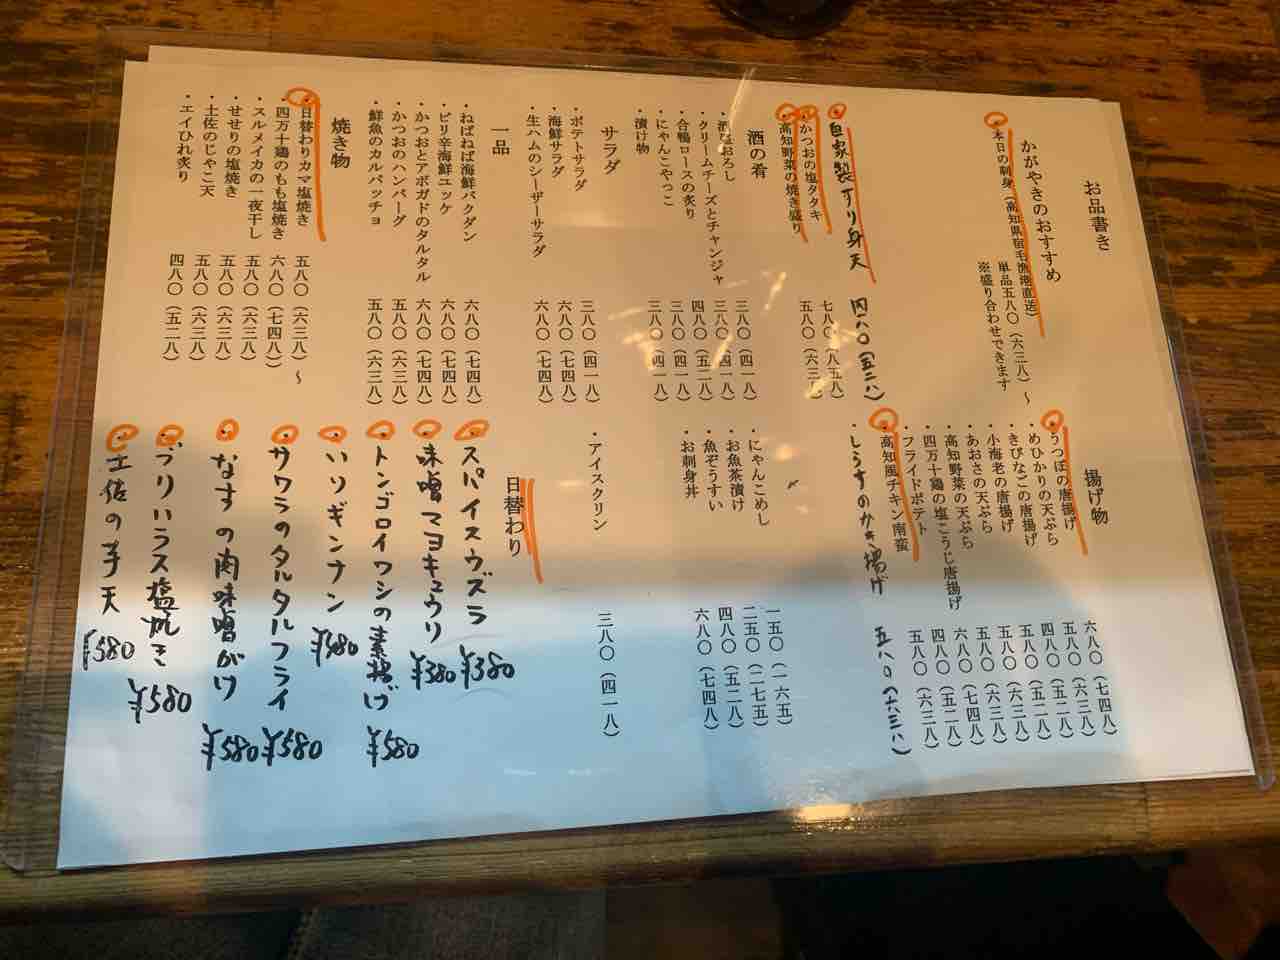 お品書き
かがやきのおすすめ
・本日の刺身（高知県宿毛漁港直送）
単品五八〇（六三八）～
※盛り合わせできます
・自家製すり身天 四八〇（五二八）
・かつおの塩タタキ 七八〇（八五八）
・高知野菜の焼き盛り 五八〇（六三八）
酒の肴
・酒盗おろし 三八〇（四一八）
・クリームチーズとチャンジャ 三八〇（四一八）
・合鴨ロースの炙り 四八〇（五二八）
・にゃんこやっこ 三八〇（四一八）
・漬け物 三八〇（四一八）
サラダ
・ポテトサラダ 三八〇（四一八）
・海鮮サラダ 六八〇（七四八）
・生ハムのシーザーサラダ 六八〇（七四八）
一品
・ねばねば海鮮バクダン 六八〇（七四八）
・ピリ辛海鮮ユッケ 六八〇（七四八）
・かつおとアボガドのタルタル 六八〇（七四八）
・かつおのハンバーグ 五八〇（六三八）
・鮮魚のカルパッチョ 五八〇（六三八）
焼き物
・日替わりカマ塩焼き 五八〇（六三八）～
・四万十鶏のもも塩焼き 六八〇（七四八）
・スルメイカの一夜干し 五八〇（六三八）
・せせりの塩焼き 五八〇（六三八）
・土佐のじゃこ天 五八〇（六三八）
・エイひれ炙り 四八〇（五二八）
揚げ物
・うつぼの唐揚げ 六八〇（七四八）
・めひかりの天ぷら 五八〇（六三八）
・きびなごの唐揚げ 四八〇（五二八）
・小海老の唐揚げ 五八〇（六三八）
・あおさの天ぷら 五八〇（六三八）
・高知野菜の天ぷら 六八〇（七四八）
・四万十鶏の塩こうじ唐揚げ 四八〇（五二八）
・フライドポテト 五八〇（六三八）
・高知風チキン南蛮
・しらすのかき揚げ 五八〇（六三八）
・にゃんこめし 一五〇（一六五）
・お魚茶漬け 二五〇（二七五）
・魚ぞうすい 四八〇（五二八）
・お刺身丼 六八〇（七四八）
・アイスクリン 三八〇（四一八）
日替わり
・スパイスウズラ ¥380
・味噌マヨキュウリ ¥380
・トンゴロイワシの素揚げ ¥580
・いソギンナン ¥480
・サワラのタルタルフライ ¥580
・なすの肉味噌がけ ¥580
・ブリハラス塩焼き ¥580
・土佐の芋天 ¥580